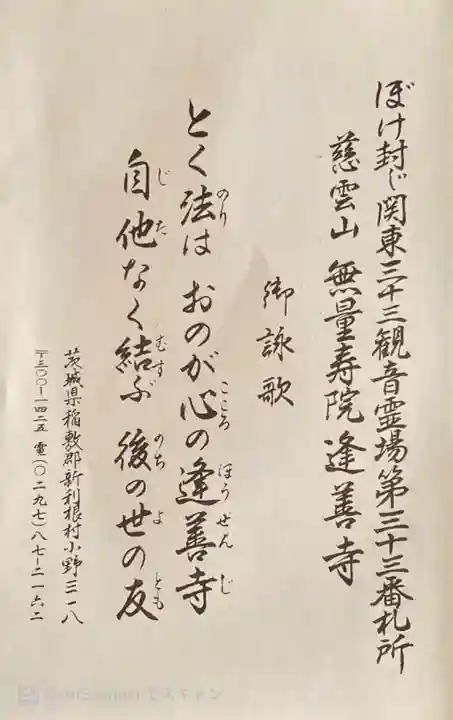 ぼけ封じ関東三十三観音霊場第三十三番札所
慈雲山 無量寿院 逢善寺
御詠歌
とく法は おのが心の逢善寺
自他なく結ぶ 後の世の友
茨城県稲敷郡新利根村小野三一八
〒三〇〇-一四二五 電(〇二九七)八七-二一六二
でスキャン